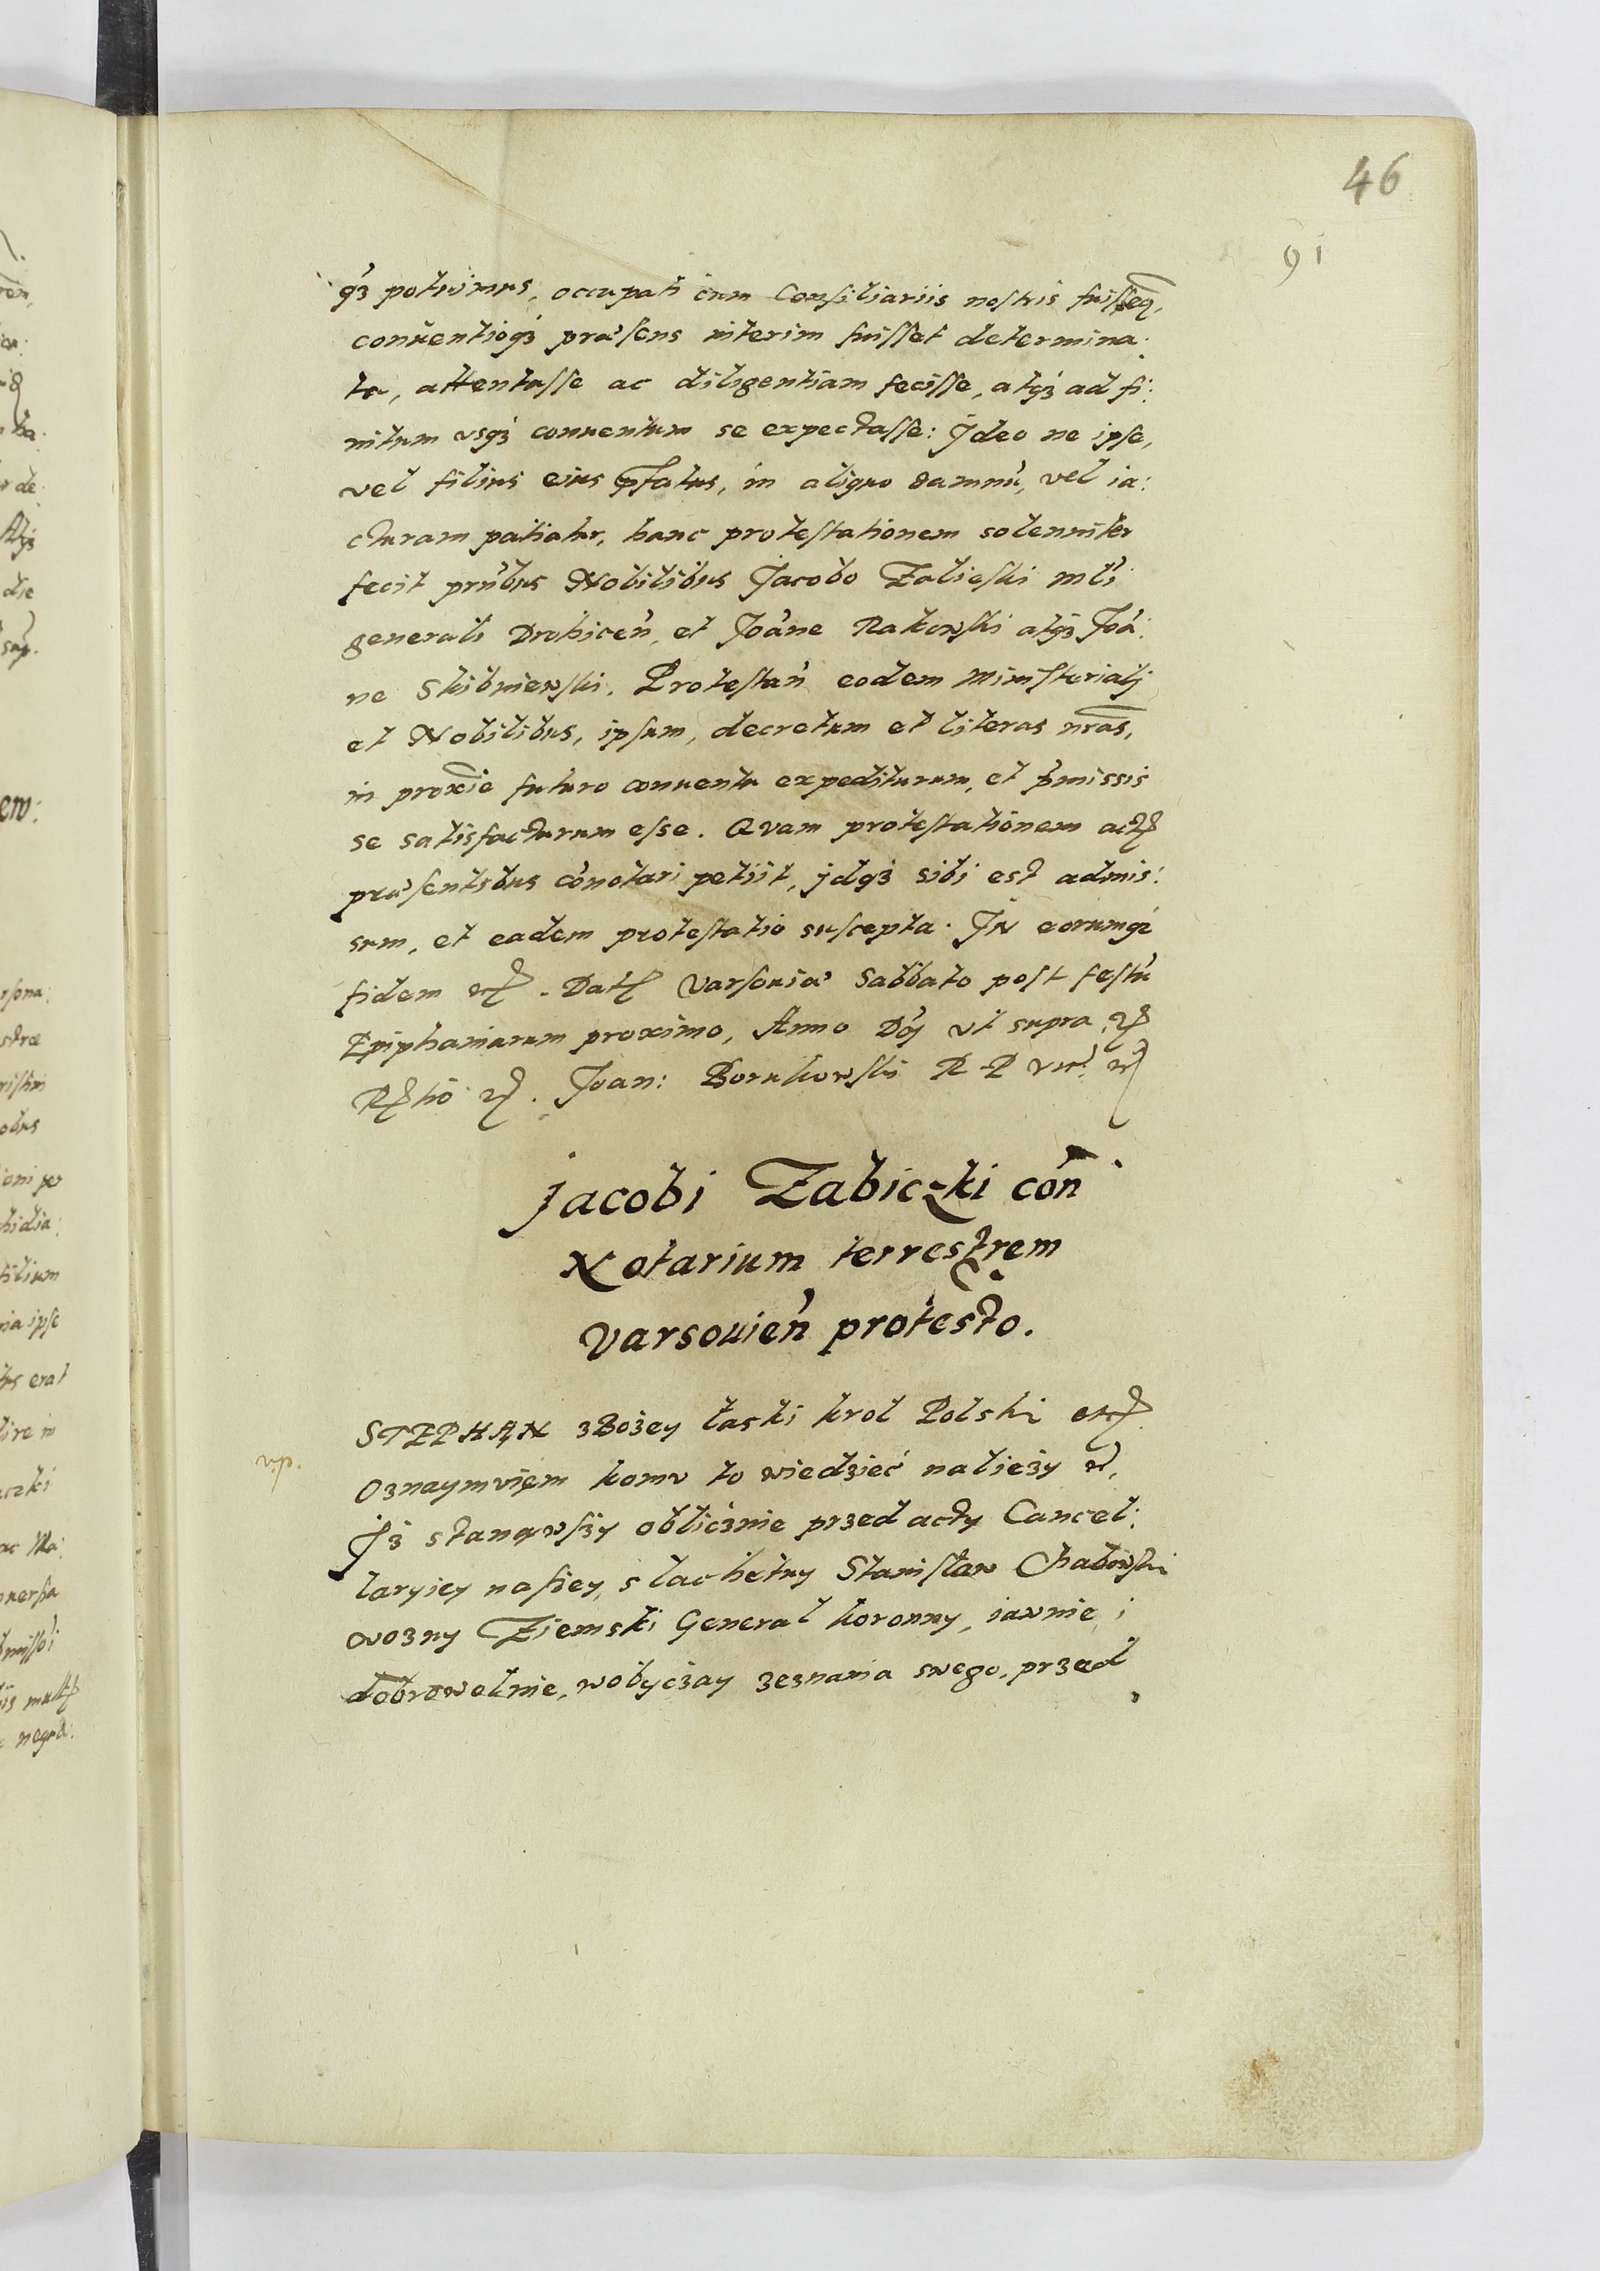 46
91
qʒ potuimus, occupati cum Consiliariis nostris fuisseṁ,
conuentioqʒ præsens interim fuisset determina:
ta, attentasse ac diligentiam fecisse, atqʒ ad fi:
nitum vsqʒ conuentum se expectasse: Jdeo ne ipse,
vel filius eius pfatus, in aliquo damnū, vel ia:
cturam patiatur, hanc protestationem solenniter
fecit pntibus Nobilibus Jacobo Zalieski mlī
generali Drohicen̄, et Joāne Rakowski atqʒ Joā:
ne Skibniewski. Protestan̄ eodem Ministerialj
et Nobilibus, ipsum, decretum et literas nrās,
in proxīe futuro conuentu expediturum, et pmissis
se satisfacturum esse. Qvam protestationem act
præsentibus cōnotari petiit, jdqʒ sibi est admis:
sum, et eadem protestatio suscepta. JN eorumqʒ
fidem etc. Dat Varsouiæ Sabbato post festū
Epiphaniarum proximo, Anno Dnj vt supra etc
Rtio etc. Joan: Borukowski R P vic etc
Jacobi Zabiczki cōn
Notarium terrestrem
Varsouien̄ protesto.
STEPHAN z Bożey łaski krol Polski etc
v.p.
Oznaymvięm komv to wiedzieć nalieży etc,
Jż stanąwszy oblicznie przed acty Cancel:
laryiey naszey, slachetny Stanisław Chabowski
wozny Ziemski General koronny, iawnie i
dobrowolnie, wobyczay zeznania swego, przed